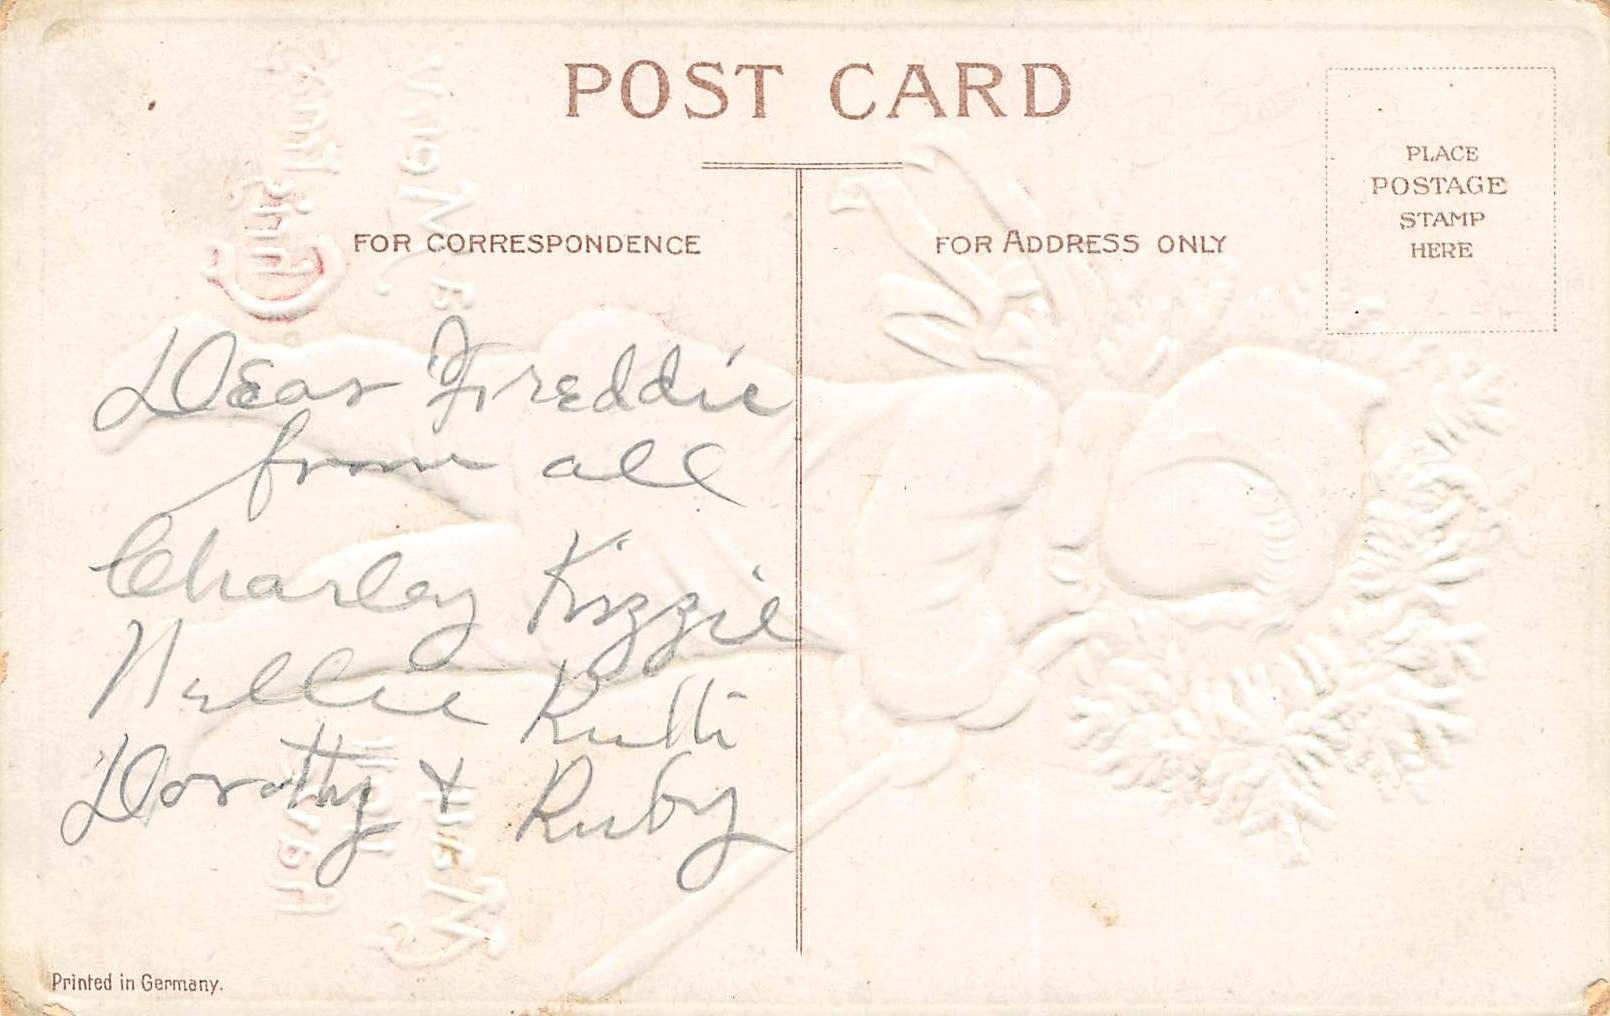 POST CARD
FOR CORRESPONDENCE
FOR ADDRESS ONLY
PLACE
POSTAGE
STAMP
HERE
Dear Freddie
from all
Charley Kizzie
Nellie Ruth
Dorothy + Ruby
Printed in Germany.